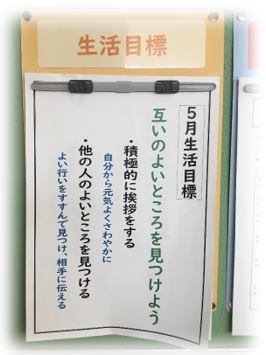 生活目標
５月生活目標
互いのよいところを見つけよう
・積極的に挨拶をする
自分から元気よくさわやかに
・他の人のよいところを見つける
よい行いをすすんで見つけ、相手に伝える